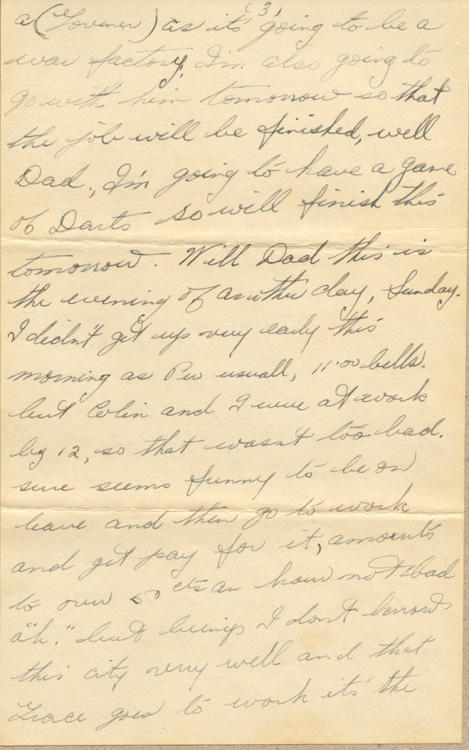 (3)
a (Governer) as it's going to be a
war factory, I'm also going to
go with him tomorrow so that
the job will be finished, well
Dad, I'm going to have a game
of Darts so will finish this
tomorrow. Will Dad this is
the evening of another day, Sunday.
I didn't get up very early this
morning as Per usuall, 11:00 bells.
but Colin and I were at work
by 12, so that wasn't too bad.
sure seems funny to be on
leave and then go to work
and get pay for it, amounts
to over 50 cts an hour not bad
"eh." but beings I don't know
this city very well and that
Grace goes to work it's the